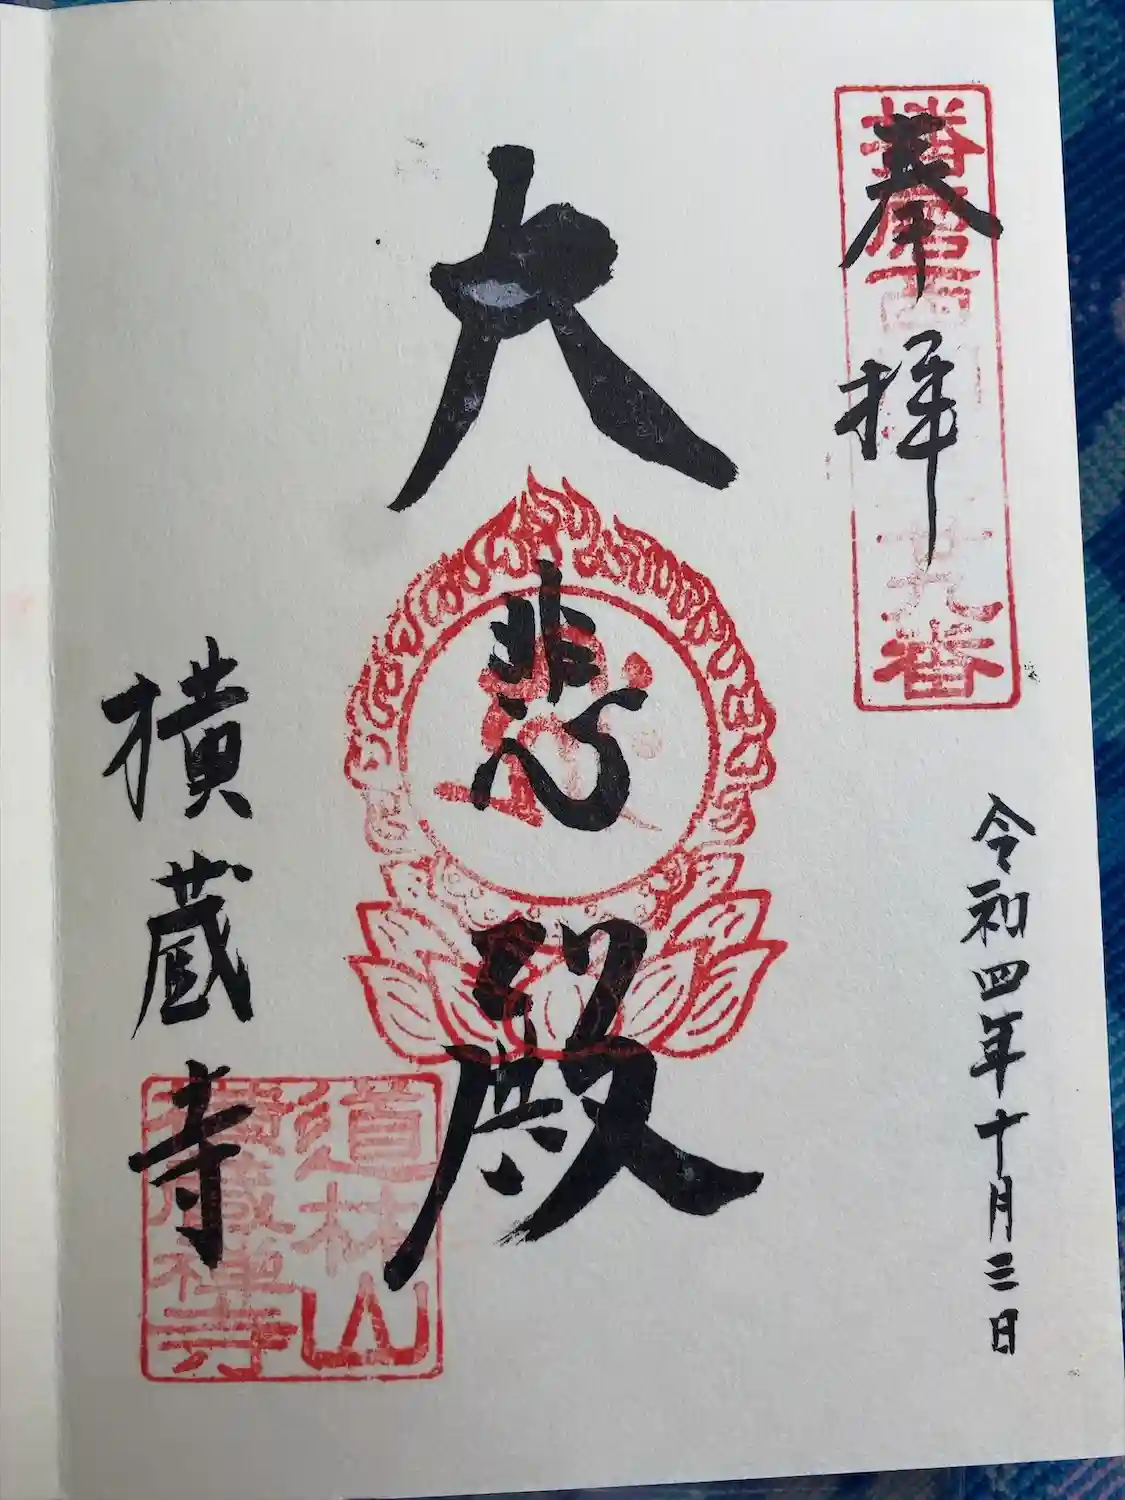 奉拝
播磨西
廿九番
令和四年十月三日
大悲殿
横蔵寺
道林山
横蔵禅寺